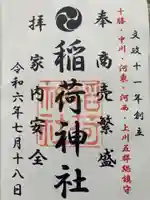 文政十一年創立
十勝・中川・河東・河西・上川五郡総鎮守
奉 商売繁盛
稲荷神社
拝 家内安全
令和六年七月十八日